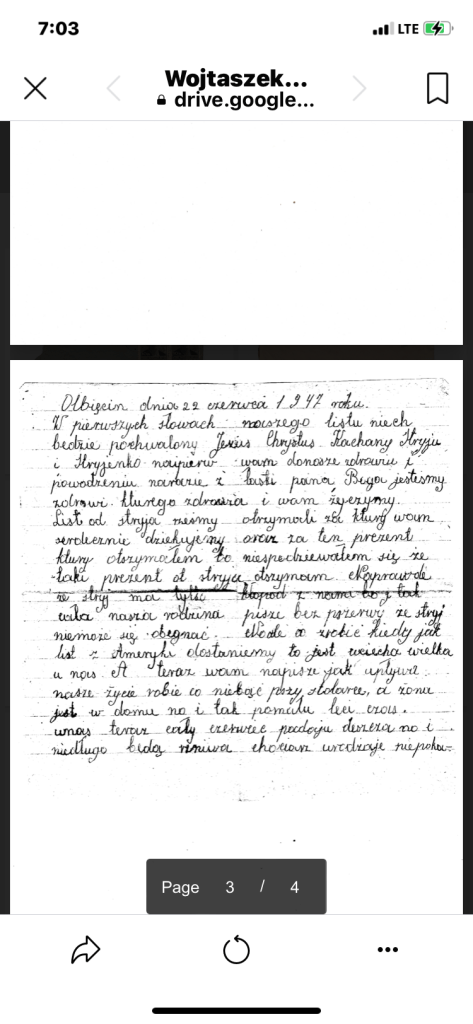 7:03
LTE
Wojtaszek...
drive.google...
Olbięcin dnia 22 czerwca 1947 roku.
W pierwszych słowach naszego listu niech
będzie pochwalony Jezus Chrystus Kachany Stryju
i Stryjenko najpierw wam donosze zdrowiu i
powodzeniu narazie z łaski pana Boga jesteśmy
zdrowi kturego zdrowia i wam życzymy.
List od stryja żeśmy otrzymali za ktury wam
serdecznie dziękujemy oraz za ten prezent
ktury otszymałem to niespodziewałem się że
taki prezent ot stryja otszymam Naprawde
że stryj ma tyłść z nami bo i tak
wila nasza rodzina pisze bez pszerwy że stryj
niemoże się obegnać a zrobić kiedy jak
list z Ameryki dostaniemy to jest uciecha wielka
u nas A teraz wam napisze jak upływa
nasze życie robie co niebąć pszy stolarce, a żona
jest w domu no i tak pomału leci czas.
unas teraz cały czerwiec padajų deszcza no i
niedługo będą żniwa chociasz urodzaje niepoka=
Page 3 / 4